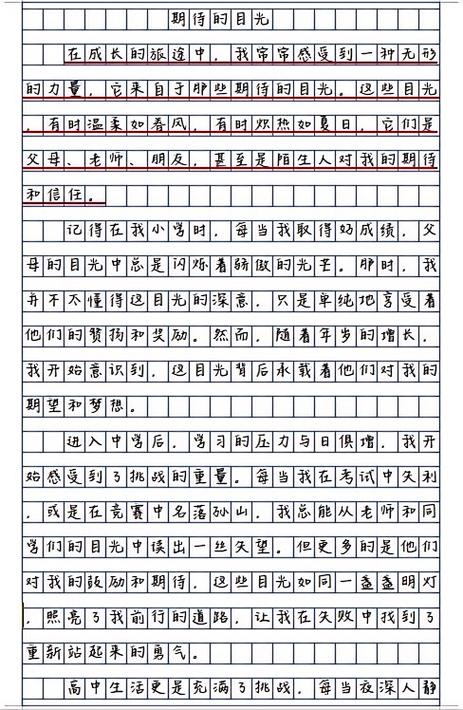 期待的目光
在成长的旅途中，我常常感受到一种无形
的力量，它来自于那些期待的目光。这些目光
，有时温柔如春风，有时炽热如夏日，它们是
父母、老师、朋友，甚至是陌生人对我的期待
和信任。
记得在我小学时，每当我取得好成绩，父
母的目光中总是闪烁着骄傲的光芒。那时，我
并不不懂得这目光的深意，只是单纯地享受着
他们的赞扬和奖励。然而，随着年岁的增长，
我开始意识到，这目光背后承载着他们对我的
期望和梦想。
进入中学后，学习的压力与日俱增，我开
始感受到了挑战的重量。每当我在考试中失利
，或是在竞赛中名落孙山，我总能从老师和同
学们的目光中读出一丝失望。但更多的是他们
对我的鼓励和期待，这些目光如同一盏盏明灯
，照亮了我前行的道路，让我在失败中找到了
重新站起来的勇气。
高中生活更是充满了挑战，每当夜深人静